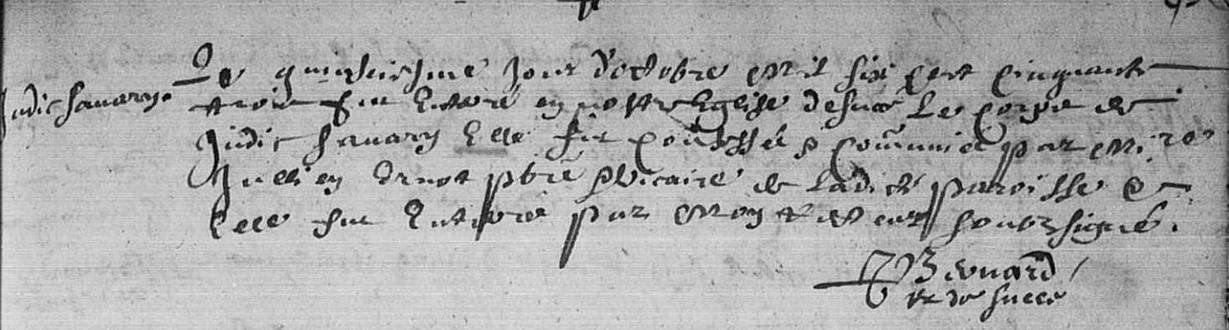 Judic Sauary.
Le quinziesme jour d'octobre mil six cent cinquante
trois fut enterré en nostre eglise de sucé le corps de
Judic Sauary elle fut confessée & communiée par m.re
Jullien pbre vicaire de ladicte paroisse &
elle fut enterrée par moy recteur soubzsigné.
Bernard
r. de succé